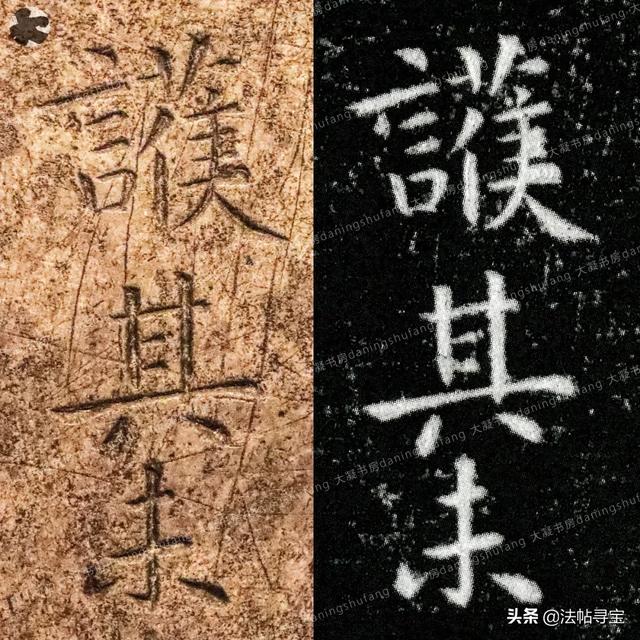 護其未
護其未
大寧书房daningshufang
头条 @法帖寻宝